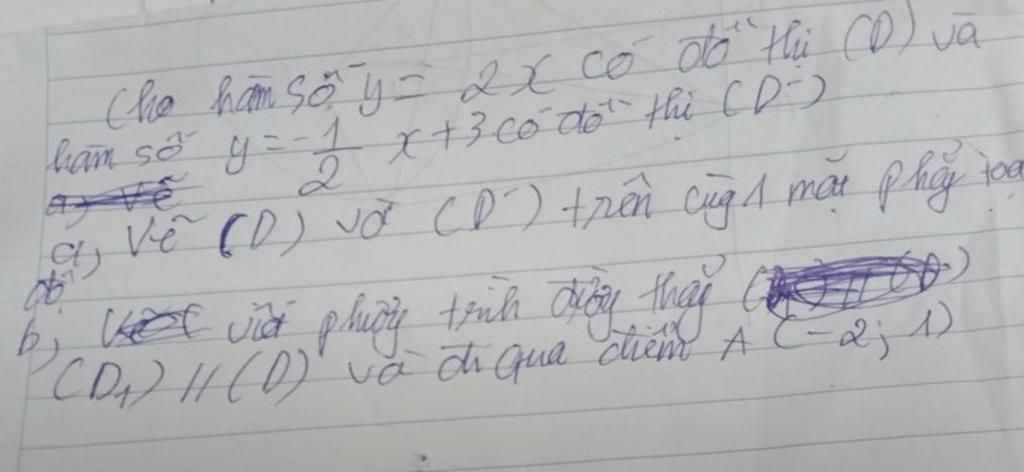 Cho hàm số y = 2x có đồ thị (D) và
hàm số y = -1/2 x + 3 có đồ thị (D')
a, Vẽ (D) và (D') trên cùg 1 mặt phẳg toạ
độ
b, viết phươg trình đườg thẳg
(D₁) // (D) và đi qua điểm A (-2; 1)